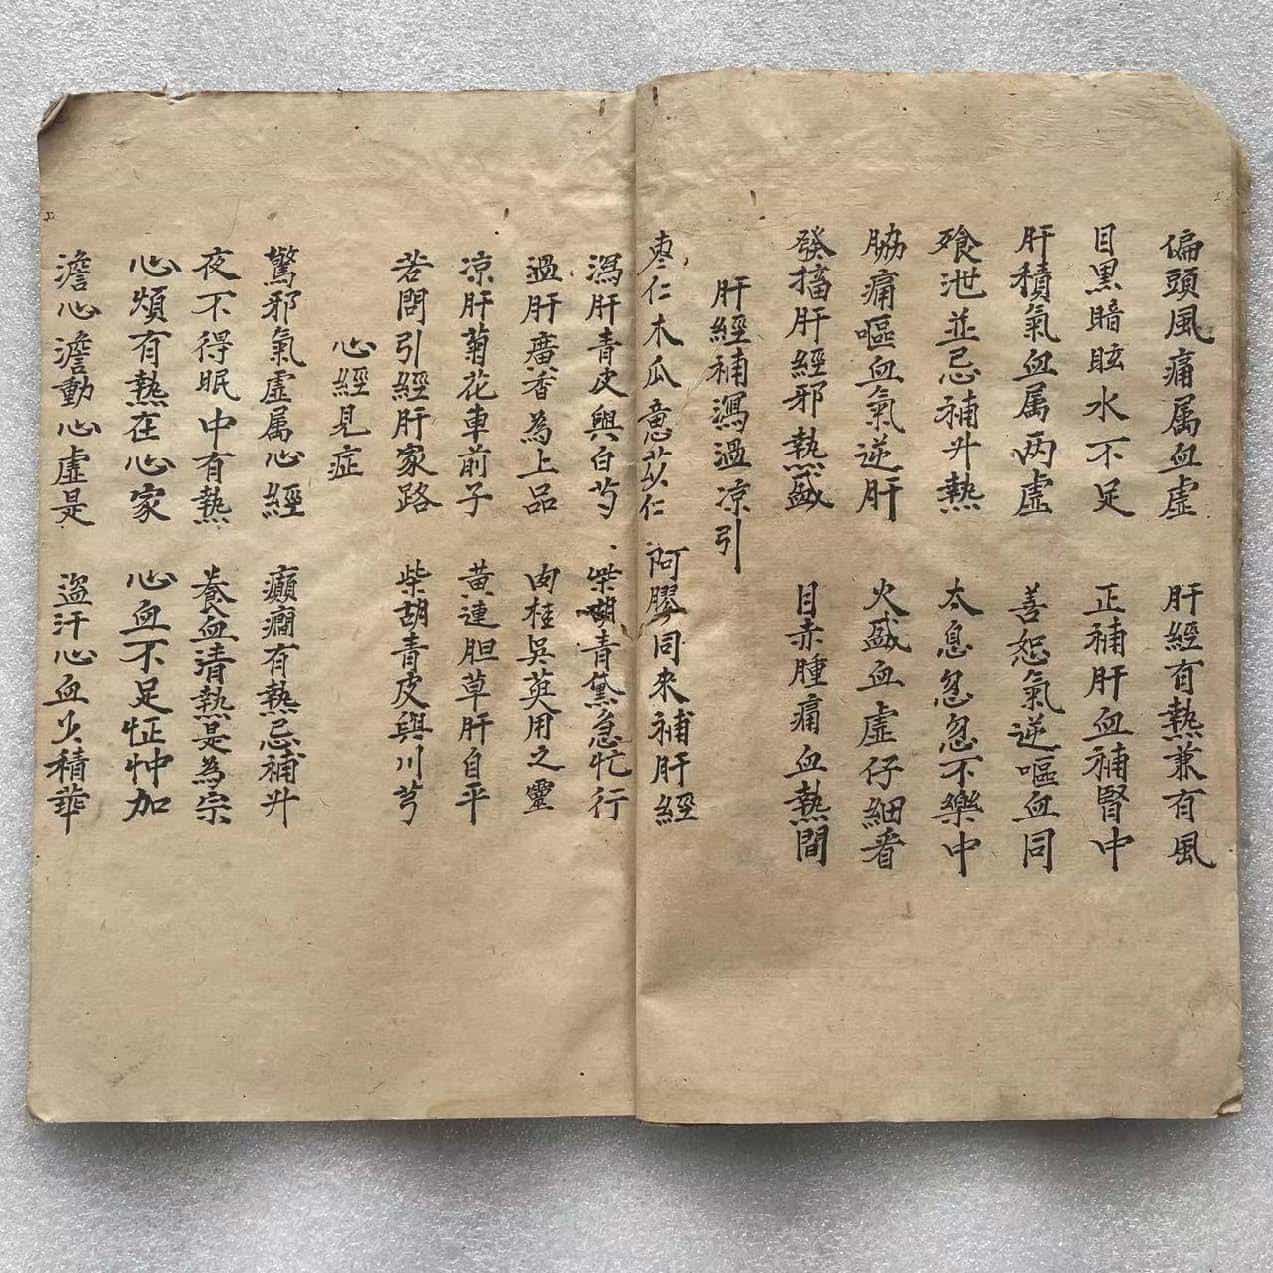 偏頭風痛属血虛 肝經有熱兼有風
目黑暗眩水不足 正補肝血補腎中
肝積氣血属两虛 善怒氣逆嘔血同
飱泄並忌補升熱 太息忽忽不樂中
脇痛嘔血氣逆肝 火盛血虛仔細看
發搐肝經邪熱盛 目赤腫痛血熱間
肝經補瀉温凉引
枣仁木瓜薏苡仁 阿膠同來補肝經
瀉肝青皮與白芍 柴胡青黛急忙行
温肝藿香為上品 肉桂吳英用之靈
凉肝菊花車前子 黃連胆草肝自平
若問引經肝家路 柴胡青皮與川芎
心經見症
驚邪氣虛属心經 癲癇有熱忌補升
夜不得眠中有熱 養血清熱是為宗
心煩有熱在心家 心血不足怔忡加
澹心澹動心虛是 盜汗心血少積華